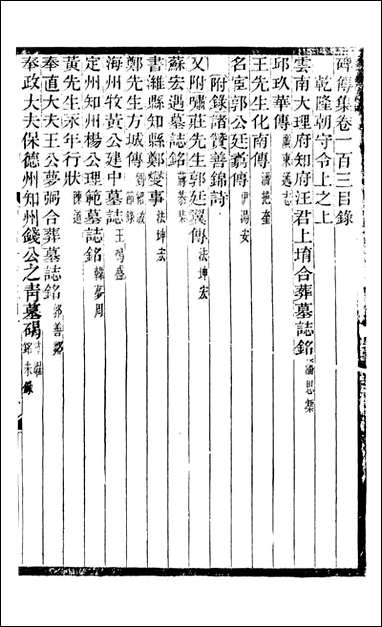 碑傳集卷一百三目錄
乾隆朝守令上之上
雲南大理府知府汪君上堉合葬墓誌銘 潘思榘
邱玖華傳 廣東通志
王先生化南傳 潘挹奎
名宦郭公廷翥傳 伊湯安
附錄諸贊善錦詩
又附嘯莊先生郭廷翼傳 法坤宏
蘇宏遇墓誌銘
書濰縣知縣鄭燮事 法坤宏
鄭先生方城傳 節錄
海州牧黃公建中墓誌 王鳴盛
定州知州楊公理範墓誌銘 韓夢周
黃先生永年行狀 陳道
奉直大夫王公夢弼合葬墓誌銘
奉政大夫保德州知州錢公之青墓碣 銘未錄